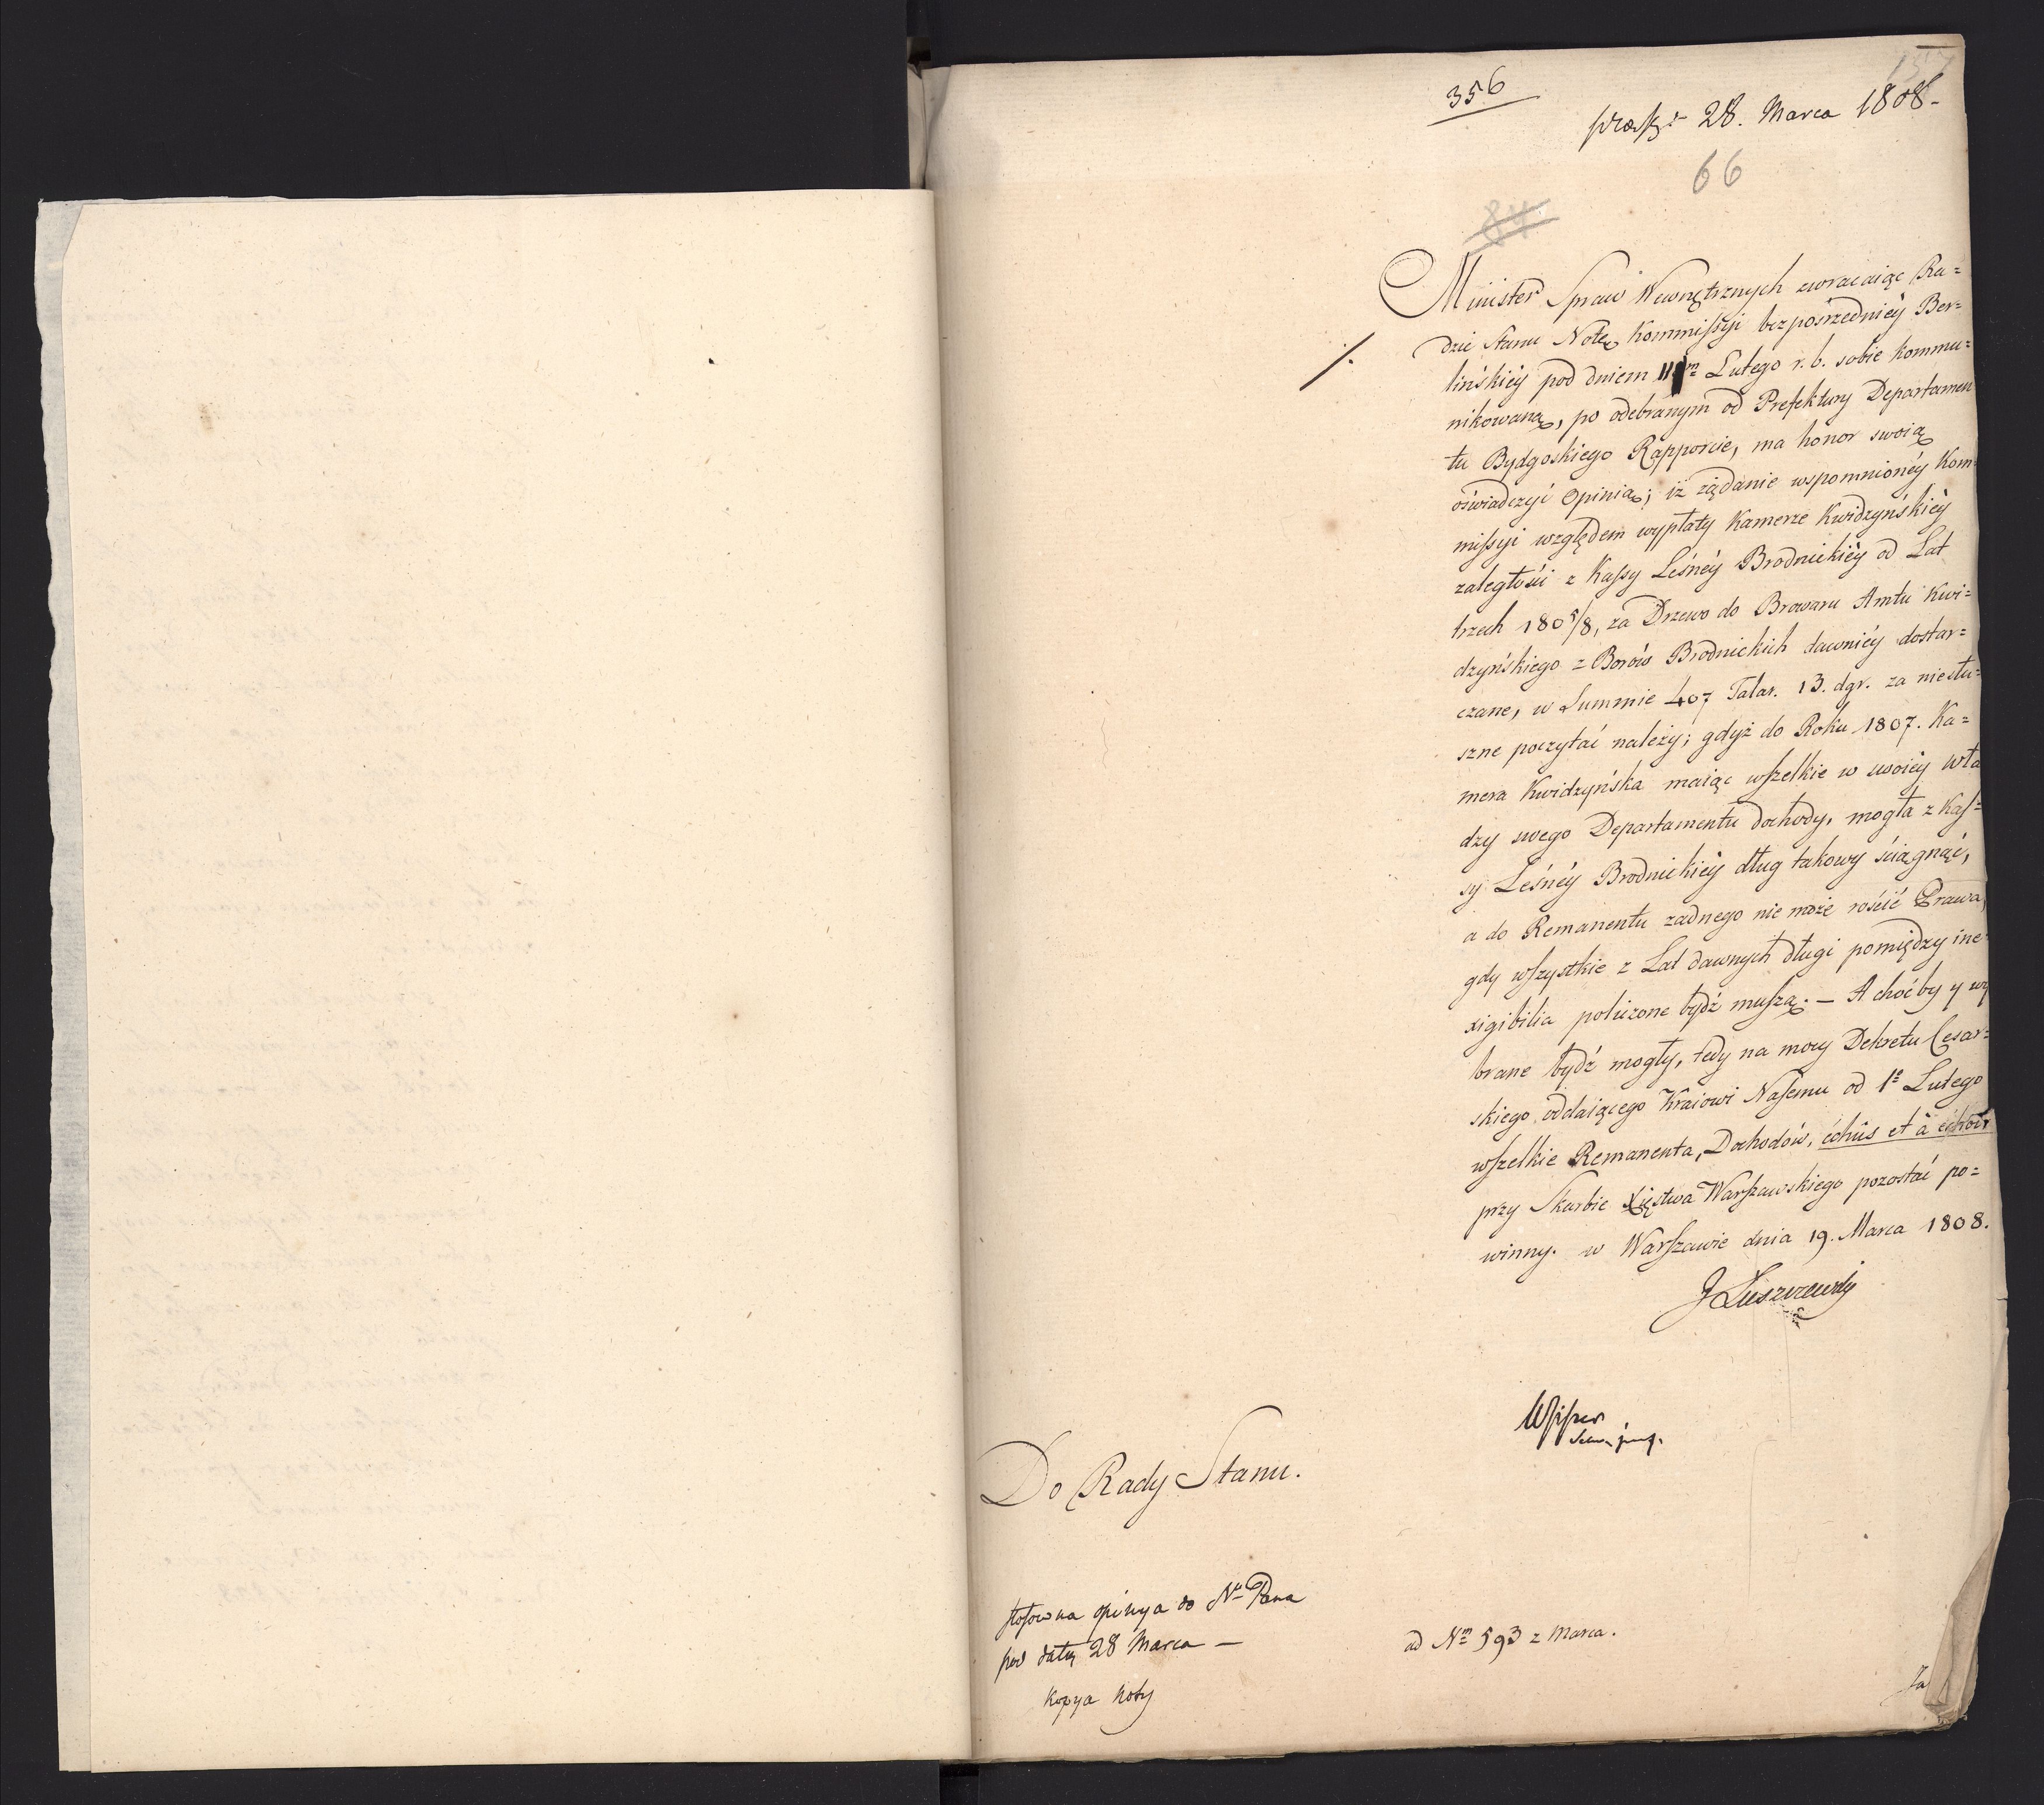 356
28. Marca 1808-
66
84
Minister Spraw Wewnętrznych zwracaiąc Ra=
dzie Stanu Notę Kommissyi bezposrzedniey Ber=
lińskiey pod dniem 11m Lutego r. b. sobie kommu=
nikowaną, po odebranym od Prefektury Departamen
tu Bydgoskiego Rapporcie, ma honor swoią
oświadczyć Opinią; iż żądanie wspomnioney Kom=
missyi względem wypłaty Kamerze Kwidzyńskiey
zaległości z Kassy Leśney Brodnickiey od Lat
trzech 1805/8, za Drzewo do Browaru Amtu Kwi=
dzyńskiego z Borów Brodnickich dawniey dostar=
czane, w Summie 407 Talar. 13. dgr. za niesłu=
szne poczytać należy; gdyż do Roku 1807. Ka=
mera Kwidzyńska maiąc wszelkie w swoiey wła
dzy swego Departamentu dochody, mogła z Kas=
sy Leśney Brodnickiey dług takowy ściągnąć,
a do Remanentu żadnego nie może rościć Prawa,
gdy wszystkie z Lat dawnych długi pomiędzy ine=
xigibilia policzone bydź muszą. – A choćby y wy
brane bydź mogły, tedy na mocy Dekretu Cesar=
skiego oddaiącego Kraiowi Naszemu od 1o Lutego
wszelkie Remanenta, Dochodów, echûs et à echoir
przy Skarbie Xięstwa Warszawskiego pozostać po=
winny. w Warszawie dnia 19. Marca 1808.
J Łuszczewsky
Do Rady Stanu.
stosowna opinya do Na Pana
pod datą 28 Marca –
Kopya Noty
ad Nm 593 z Marca.
Za